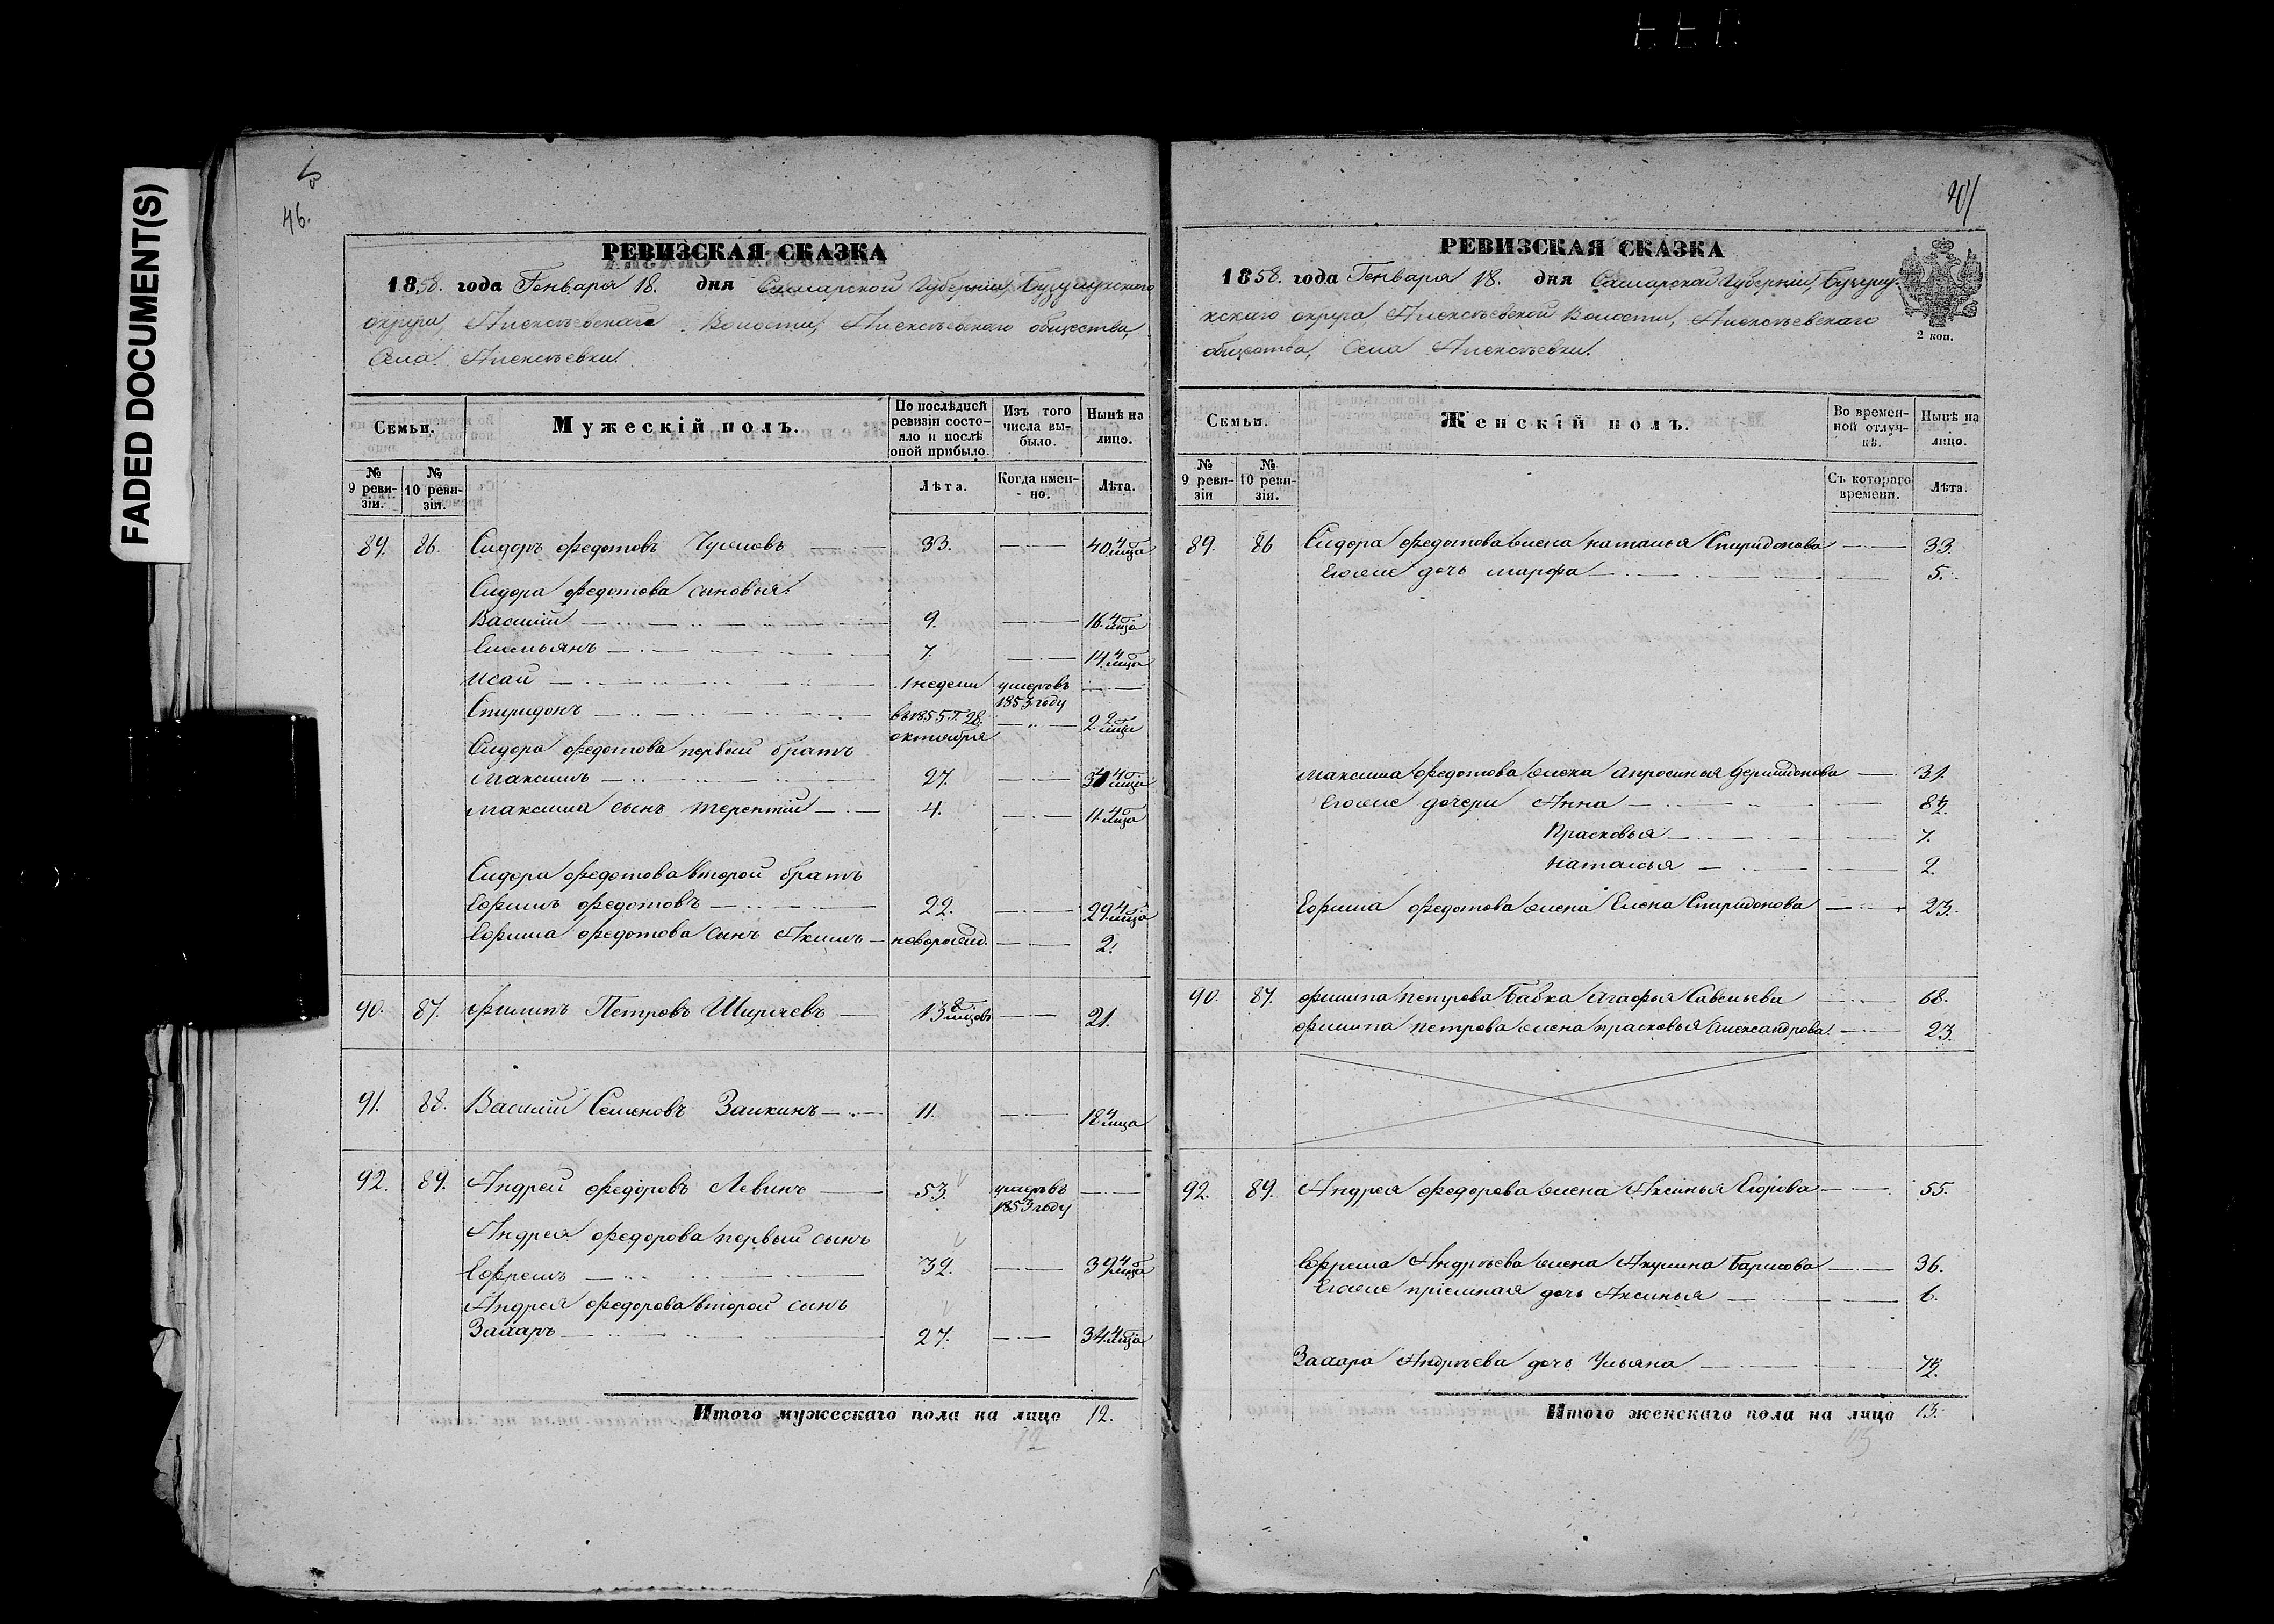 FADED DOCUMENT(S)
46.
РЕВИЗСКАЯ СКАЗКА
1858. года Генваря 18. дня Самарской Губерніи, Бузулукскаго
округа, Алексѣевскаго Волости, Алексѣевскаго общества,
Села Алексѣевки.
Семьи.
Мужескій полъ.
По послѣдней ревизіи состояло и послѣ оной прибыло.
Изъ того числа выбыло.
Нынѣ на лицо.
№ 9 ревизіи.
№ 10 ревизіи.
Лѣта.
Когда именно.
Лѣта.
89. 86. Сидоръ Федотовъ 33. 40 4/мѣца
Сидора Федотова сыновья:
Василій 9. 16. 4/мѣца
Емельянъ 7. 14. 4/мѣца
Исай 1 недели умеръ въ 1853 году
Спиридонъ въ 1855 г. 28. октября 2. 2/мѣца
Сидора Федотова первый братъ
Максимъ 27. 34 4/мѣца
Максима сынъ Терентій 4. 11. 4/мѣца
Сидора Федотова второй братъ
Ефимъ Федотовъ 22. 29 4/мѣца
Ефима Федотова сынъ Акимъ новорожд. 2.
90. 87. Филипъ Петровъ Ширяевъ 13 8/мѣцовъ 21.
91. 88. Василій Семеновъ Заикинъ 11. 18 4/мѣца
92. 89. Андрей Федоровъ Левинъ 53. умеръ въ 1853 году
Андрея Федорова первый сынъ
Ефремъ 32. 39 4/мѣца
Андрея Федорова второй сынъ
Захаръ 27. 34 4/мѣца
Итого мужескаго пола на лицо 12.
12
201
РЕВИЗСКАЯ СКАЗКА
1858. года Генваря 18. дня Самарской Губерніи, Бузулу-
кскаго округа, Алексѣевской Волости, Алексѣевскаго
общества, Села Алексѣевки.
2 коп.
Семьи.
Женскій полъ.
Во временной отлучкѣ.
Нынѣ на лицо.
№ 9 ревизіи
№ 10 ревизіи.
Съ котораго времени.
Лѣта.
89. 86 Сидора Федотова жена Наталья Спиридонова 33.
Егоже дочь Марфа 5.
Максима Федотова жена Апросинья 31.
Егоже дочери Анна 8½.
Прасковья 7.
Наталья 2.
Ефима Федотова жена Елена Спиридонова 23.
90. 87. Филипа Петрова Бабка Агафья Савельева 68.
Филипа Петрова жена Прасковья Александрова 23.
92. 89. Андрея Федорова жена Аксинья Егорова 55.
Ефрема Андрѣева жена Акулина Барисова 36.
Егоже пріемная дочь Аксинья 6.
Захара Андрѣева дочь Ульяна 7½.
Итого женскаго пола на лицо 13.
13